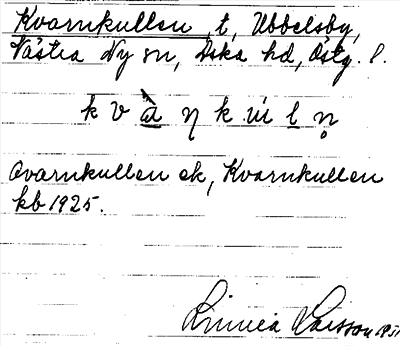 Kvarnkullen, t, Ubbelsby,
Västra Ny sn, Aska hd, Östg. l.
k v à̱ ŋ k ùi l̲ n̥
Qvarnkullen ek, Kvarnkullen
kb 1925.
Linnéa Larsson 1951